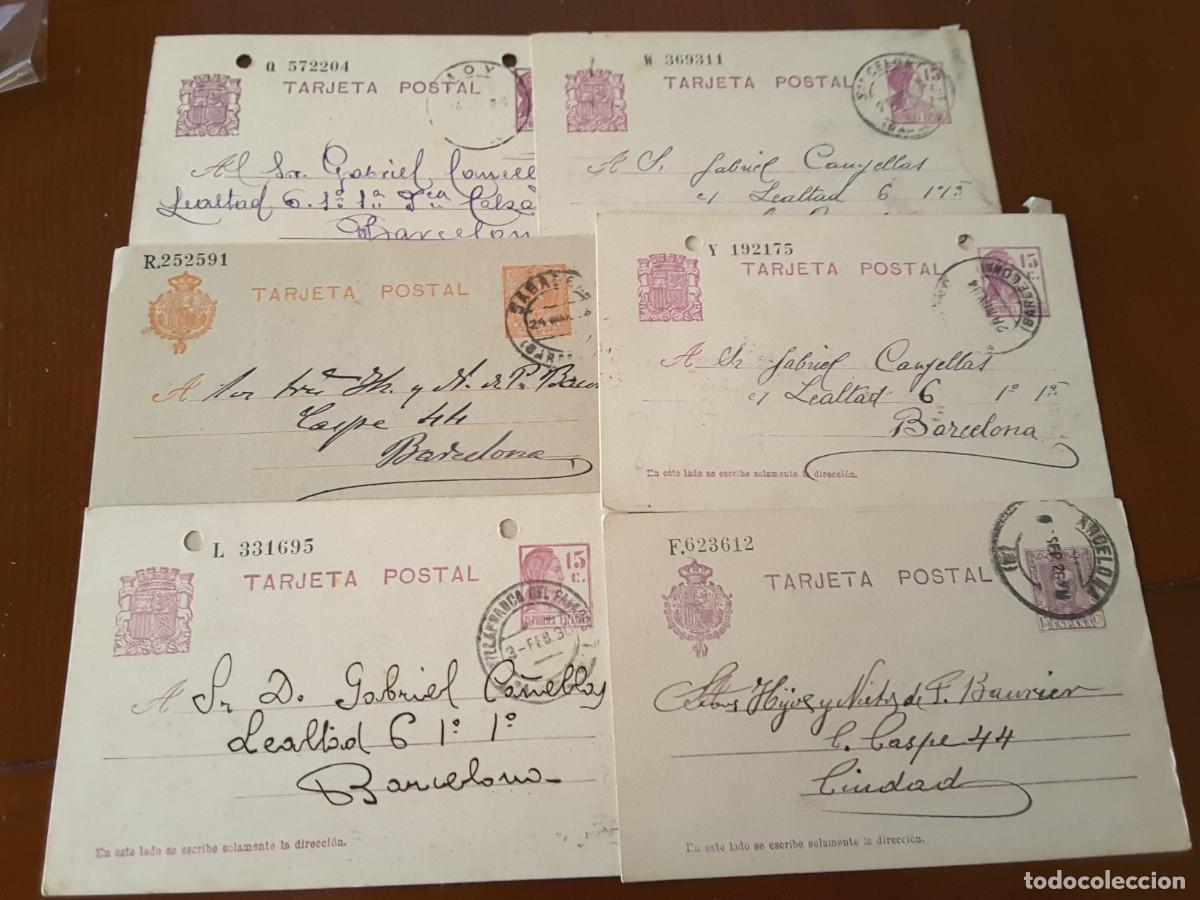 Q 572204
TARJETA POSTAL
Al Sr. Gabriel
Lealtad 6. 1º 1ª
Barcelon
W 369311
TARJETA POSTAL
15
A Sr Gabriel Canyellas
c/ Lealtad 6 1º 1ª
R.252591
TARJETA POSTAL
A
Caspe 44
Barcelona
Y 192175
TARJETA POSTAL
15 c.
A Sr Gabriel Canyellas
c/ Lealtad 6 1º 1ª
Barcelona
En este lado se escribe solamente la dirección.
L 331695
TARJETA POSTAL
15 C.
VILLAFRANCA DEL PANADES
3-FEB.36
A Sr D. Gabriel Cañebla
Lealtad 6 1º 1º
Barcelona
En este lado se escribe solamente la dirección.
F.623612
TARJETA POSTAL
ESPAÑA
Hijos y Nietos de P. Baurier
C. Caspe 44
Ciudad
En este lado se escribe solamente la dirección.
todocoleccion